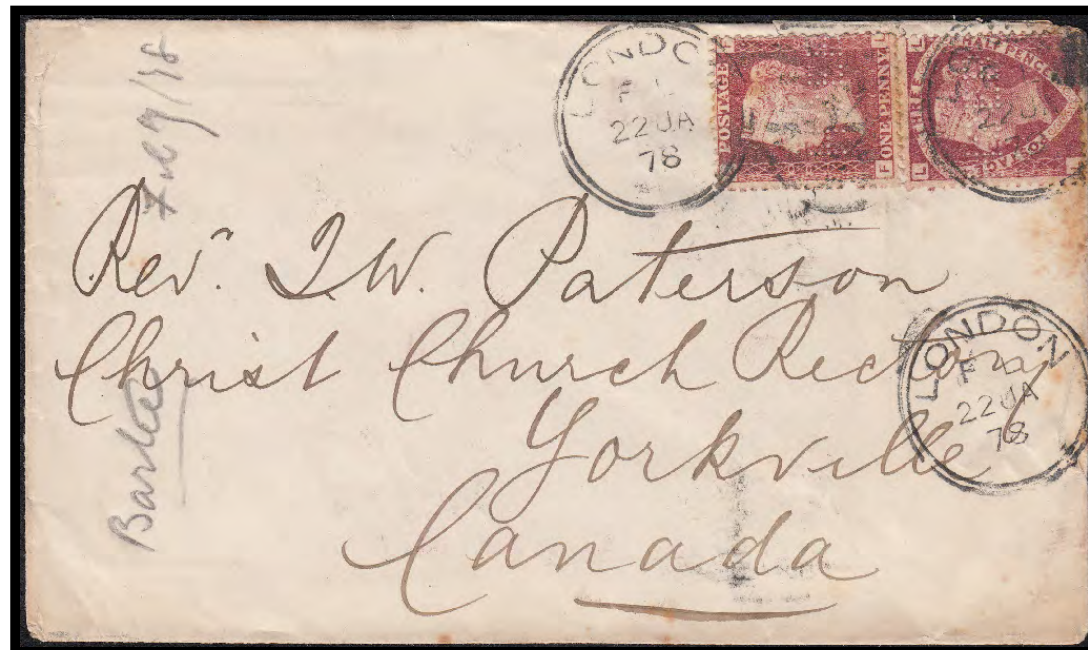 LONDON
F L
22 JA
78
POSTAGE
ONE PENNY
F
L
THREE HALF PENCE
POSTAGE
L
F
22 JA
Rev. T. W. Paterson
Christ Church Rectory
Yorkville
Canada
LONDON
F
22 JA
78